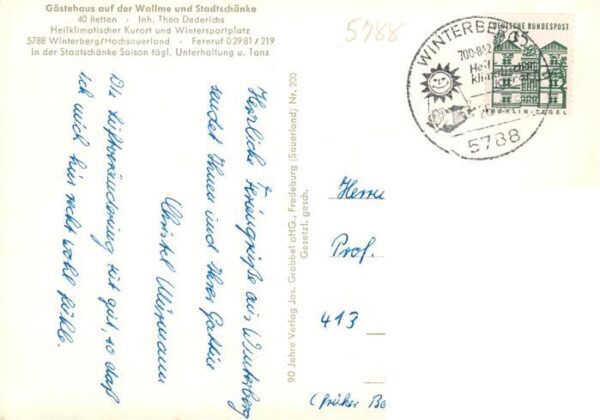 Gästehaus auf der Wallme und Stadtschänke
40 Betten · Inh. Theo Dederichs
Heilklimatischer Kurort und Wintersportplatz
5788 Winterberg/Hochsauerland · Fernruf 02981/219
In der Staatschänke Saison tägl. Unterhaltung u. Tanz
5788
Herzliche Feriengrüße aus Winterberg
sendet Ihnen und Ihrer Gattin
Christel
Die Luftveränderung tut gut, so daß
ich mich hier recht wohl fühle.
90 Jahre Verlag Jos. Grobbel oHG., Fredeburg (Sauerland) Nr. 200
Gesetzl. gesch.
WINTERBERG
700-
Heil
klima
5788
DEUTSCHE BUNDESPOST
35
BERLIN-TEGEL
Herrn
Prof.
413
(früher Be